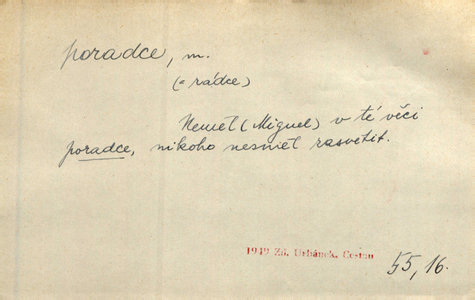 poradce, m.
(= rádce)
Neměl (Miguel) v té věci
poradce, nikoho nesměl zasvětit.
1949 Zd. Urbánek, Cestou
55, 16.